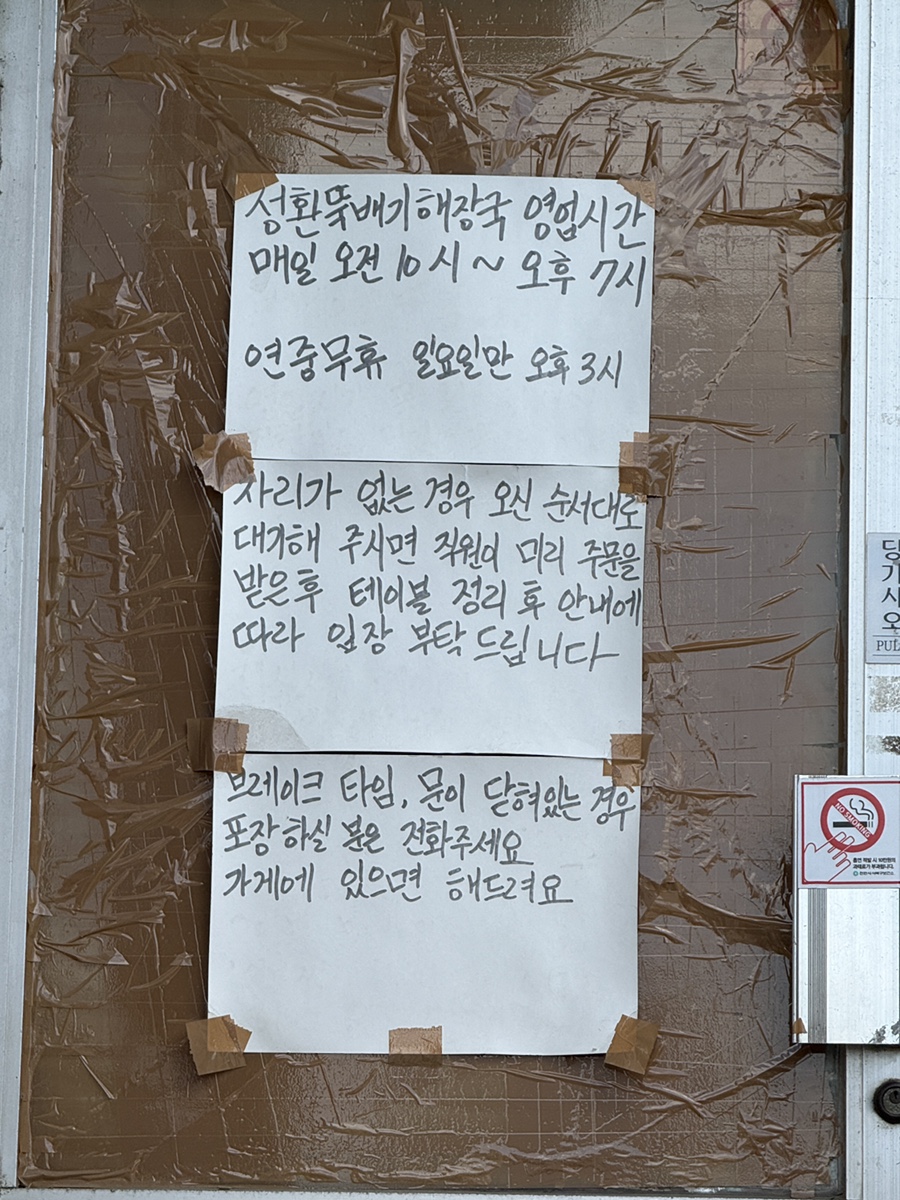 성환뚝배기해장국 영업시간
매일 오전 10시 ~ 오후 7시
연중무휴 일요일만 오후 3시
자리가 없는 경우 오신 순서대로
대기해 주시면 직원이 미리 주문을
받은후 테이블 정리 후 안내에
따라 입장 부탁드립니다
브레이크 타임, 문이 닫혀있는 경우
포장하실 분은 전화주세요
가게에 있으면 해드려요
PUL
NO SMOKING
흡연 적발 시 10만원의
과태료가 부과됩니다.